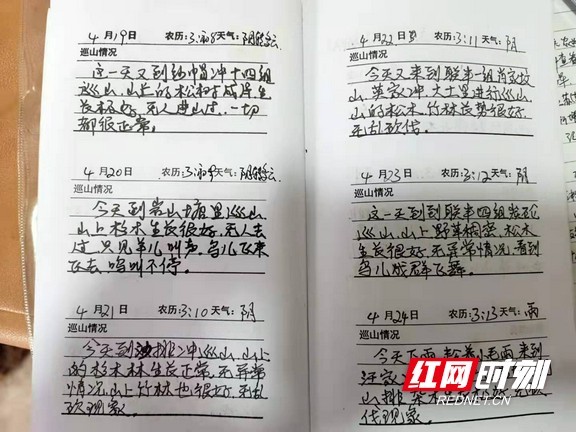 4月19日 农历:3:初8 天气:阴转多云
巡山情况
这一天又到 冲十四组
巡山,山上的松树成片生
长极好,无人进山过,一切
都很正常。
4月20日 农历:3:初9 天气:阴转多云
巡山情况
今天到 山塘里巡山
山上松木生长很好,无人去
过,只见羊儿叫声,鸟儿飞来
飞去,鸣叫不停。
4月21日 农历:3:10 天气:阴
巡山情况
今天到 排冲巡山,山上
的杉木林生长正常,无异常
情况,山上竹林也很好,无乱
砍现象
4月22日 农历:3:11 天气:阴
巡山情况
今天又来到联丰一组肖家坟
山,英家冲,大土里进行巡山,
山的松木,竹林长势很好,
无乱砍伐。
4月23日 农历:3:12 天气:阴
巡山情况
这一天到到联丰四组 
巡山,山上野草稠密,松木
生长很好,无异常情况,看到
鸟儿成群飞舞。
4月24日 农历:3:13 天气:雨
巡山情况
今天下雨, 着小毛雨来到
汪家
山排
伐现象。
红网时刻
REDNET.CN